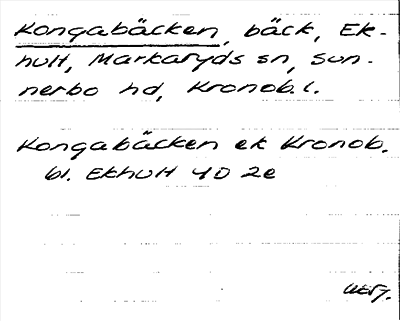 Kongabäcken, bäck, Ek-
hult, Markaryds sn, Sun-
nerbo hd, Kronob. l.
Kongabäcken ek Kronob.
bl. Ekhult 4D 2e